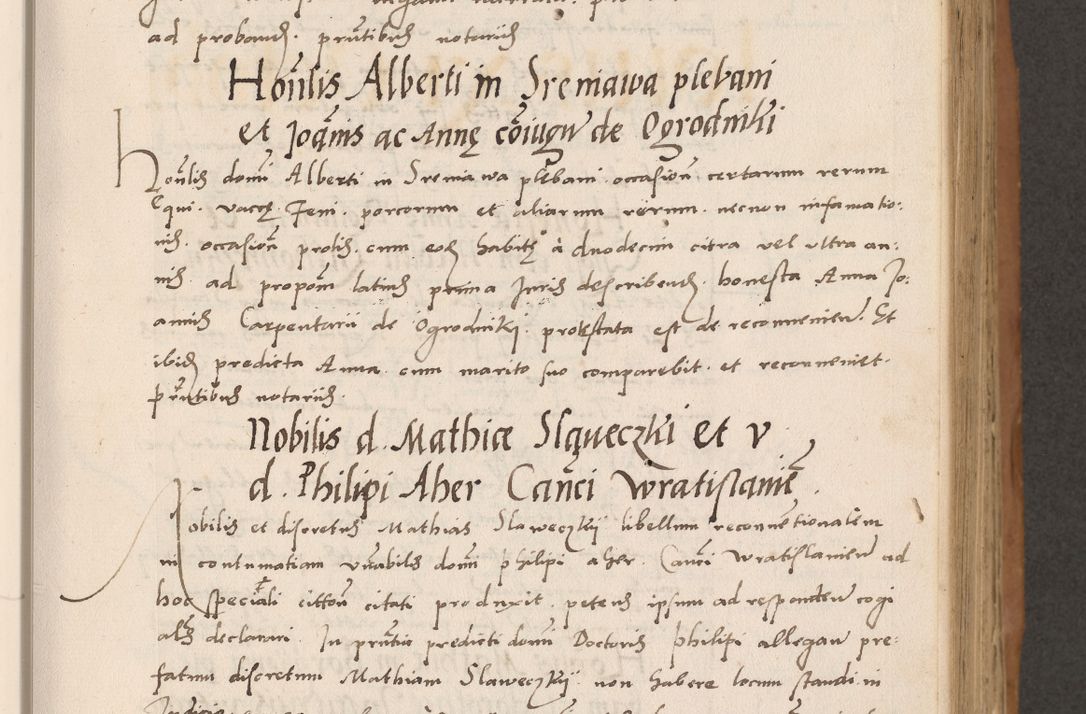 ad probandȝ. prn̄tibuȝ notariȷȝ
Hon̄ilis Alberti in Sreniawa plebani
et Joān̄is ac Annę cōiugū de Ogrodniki
Hon̄iliȝ domī Alberti in Sreniawa plebani. occasioñ certarum rerum
Equi. vaccę Feni. porcorum et aliarum rerum. necnon infamatio:
niȝ. occasioñ proliȝ cum eoȝ habitę à duodecim citra vel vltra an:
nis ad propoñ latiuȝ prima Juriȝ describendȝ. honesta Anna Jo:
anniȝ Carpentarii de Ogrodniki. protestata est de reconueniēn. Et
ibidȝ predicta Anna. cum marito suo comparebit. et reconueniet.
prn̄tibuȝ notarȷȷȝ.
Nobilis d. Mathiæ Sląueczki et v
d. Philipi Aher Can̄ci Wratislauieñ.
Nobiliȝ et discretuȝ Mathias Slaweczkij libellum reconuētionalem
in contumatiam vn̄abiliȝ domī philipi aher. Can̄ci wratislauieñ ad
hoc speciali cittoñ citati produxit. petenȝ ipsum ad respondeñ cogi
alȝ declarari. In prn̄tia predicti domī Doctoriȝ philipi allegañ pre:
fatum discretum Mathiam Slaweczkij non habere locum standi in